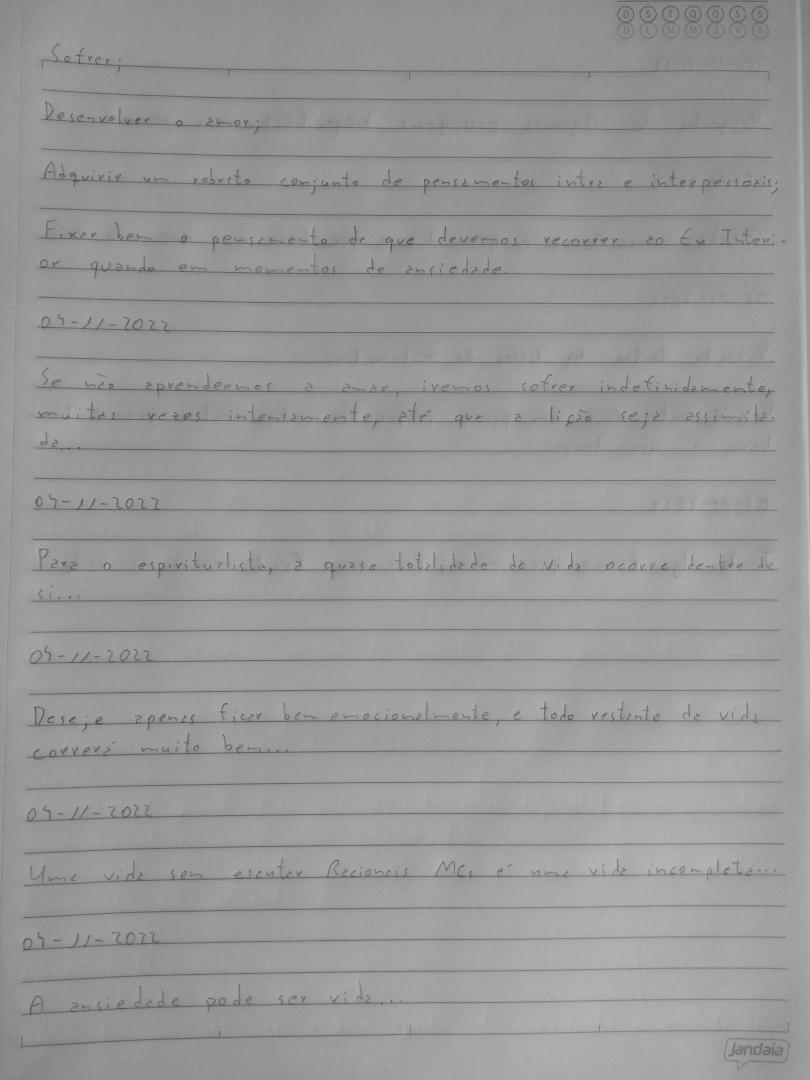 D S T Q Q S S
D L M M J V S
Sofrer;
Desenvolver o amor;
Adquirir um robusto conjunto de pensamentos intra e interpessoais;
Fixar bem o pensamento de que devemos recorrer ao Eu Interi-
or quando em momentos de ansiedade.
04-11-2022
Se não aprendermos a amar, iremos sofrer indefinidamente,
muitas vezes intensamente, até que a lição seja assimila-
da...
04-11-2022
Para o espiritualista, a quase totalidade da vida ocorre dentro de
si...
04-11-2022
Deseje apenas ficar bem emocionalmente, e todo restante da vida
correrá muito bem...
04-11-2022
Uma vida sem escutar Racionais MCs é uma vida incompleta...
04-11-2022
A ansiedade pode ser vida...
Jandaia